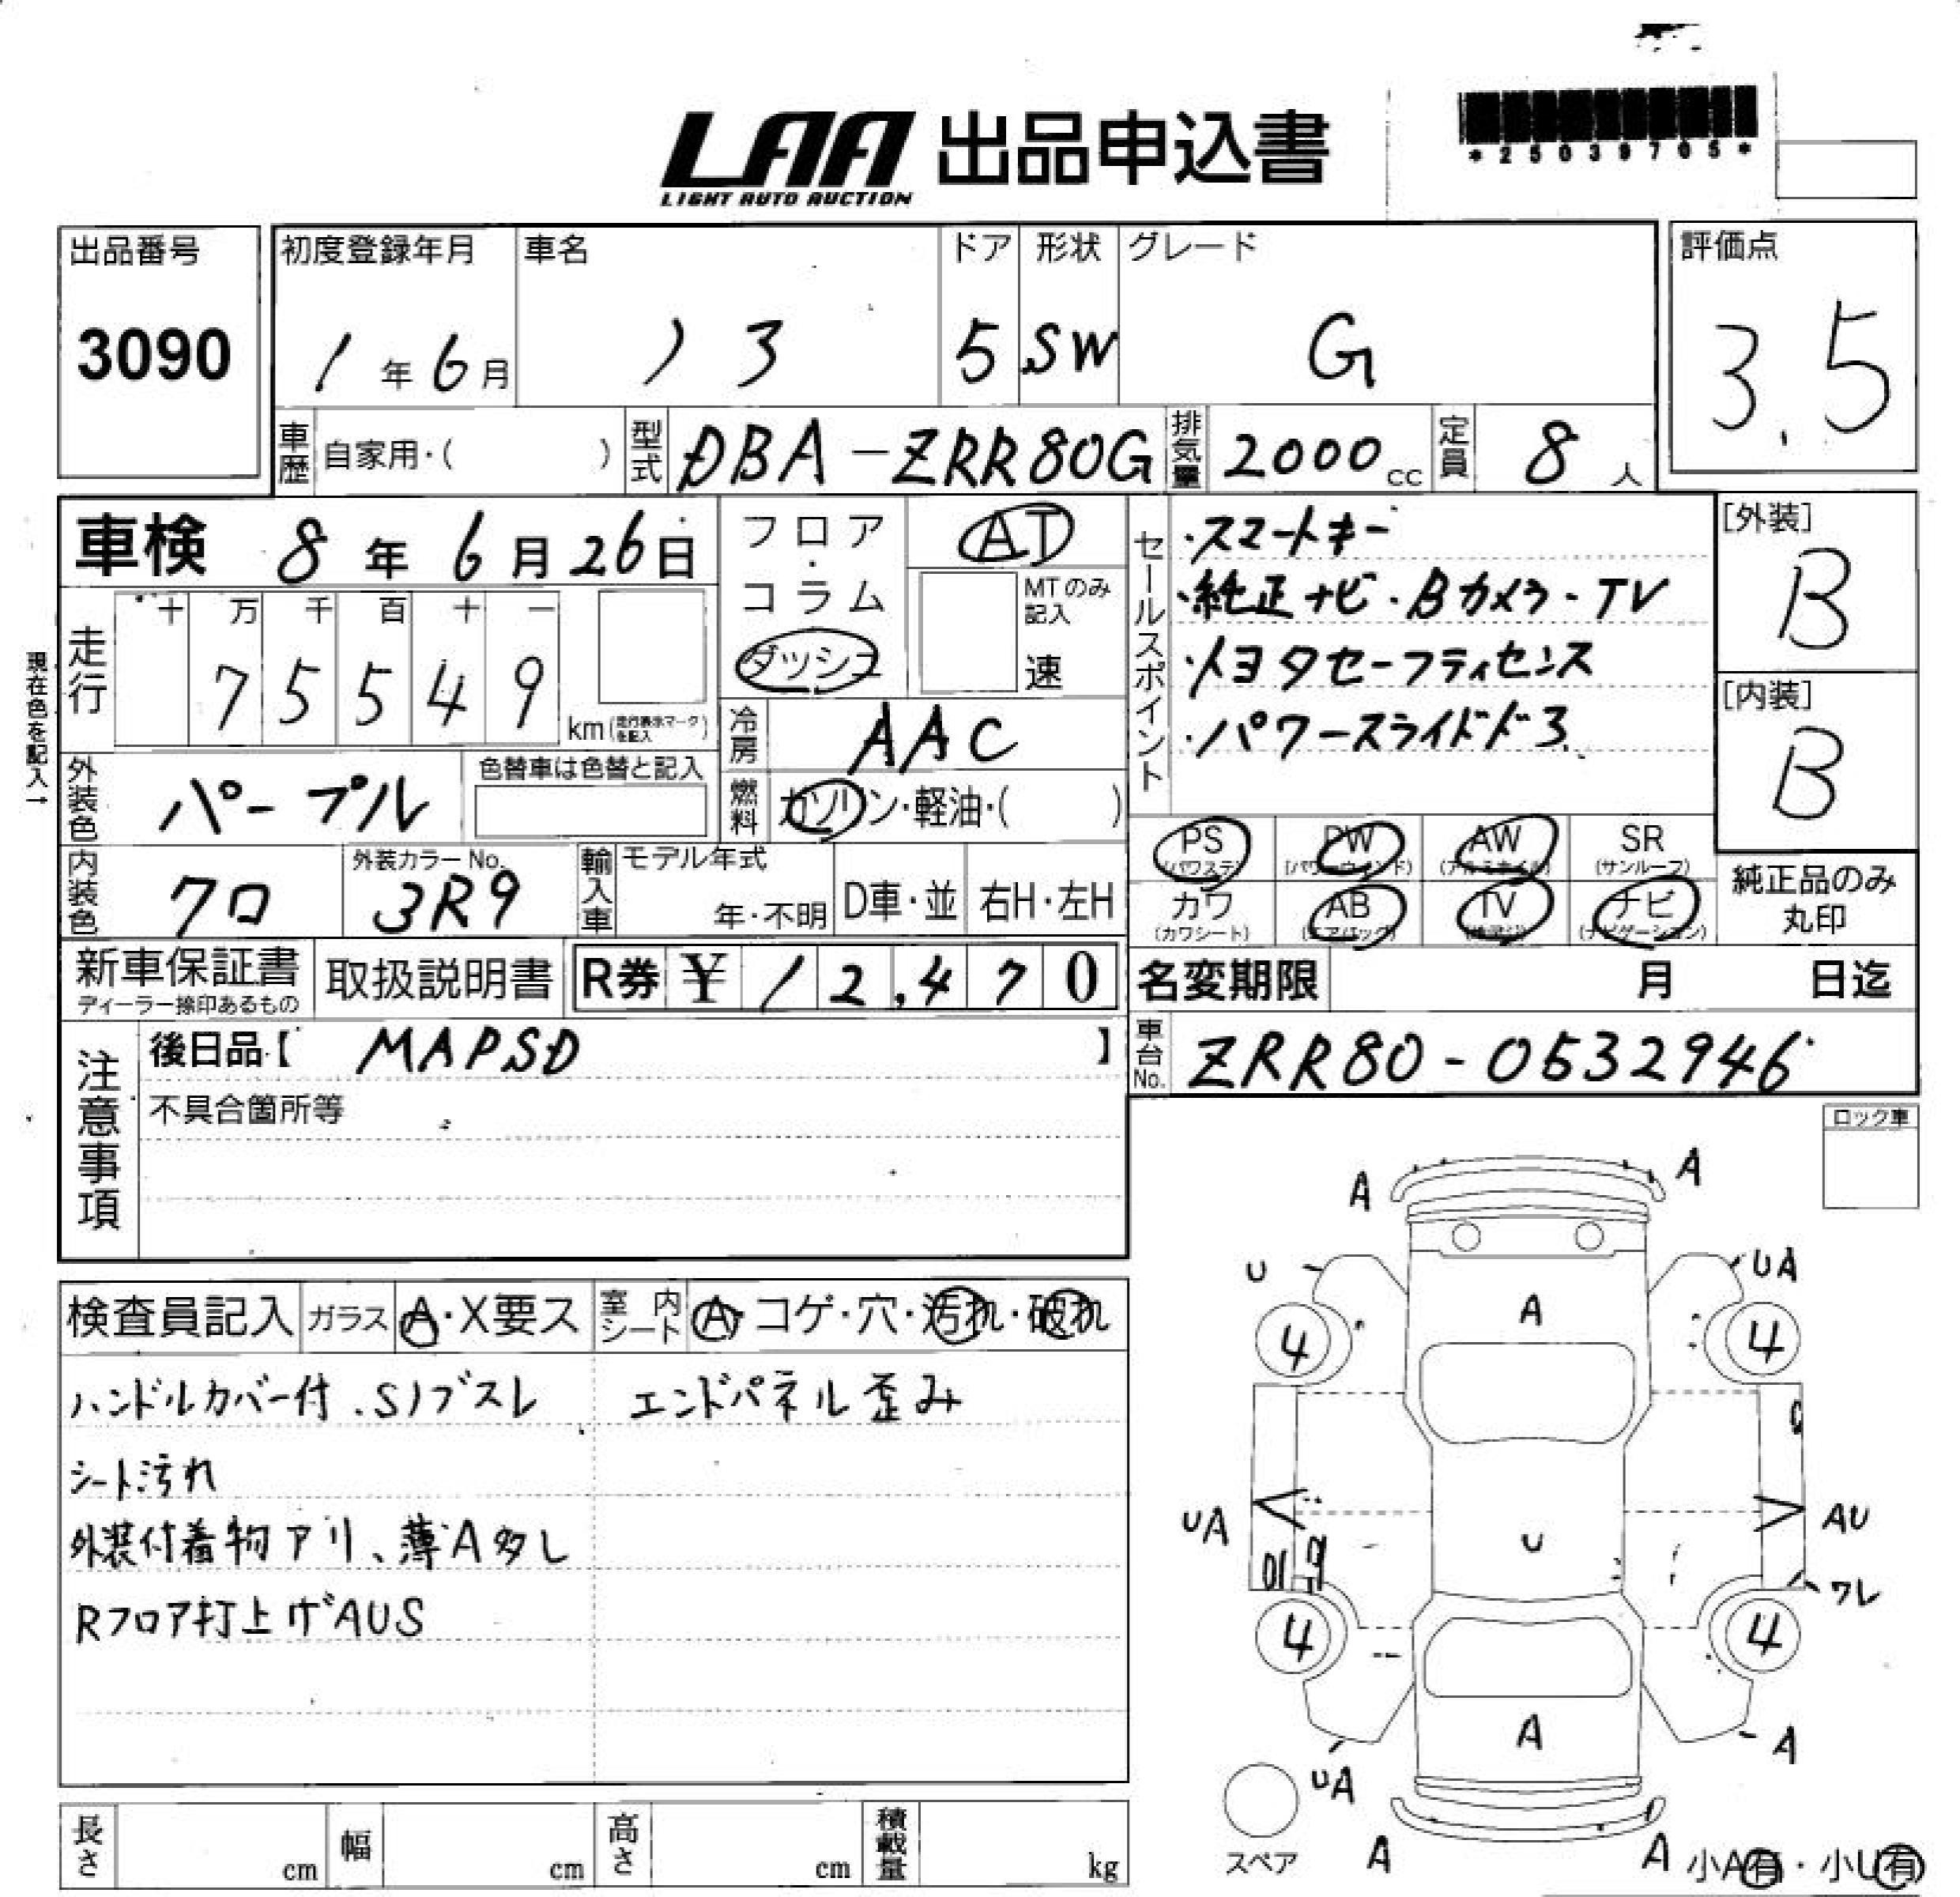 LAA 出品申込書
LIGHT AUTO AUCTION
*25039705*
出品番号 初度登録年月 車名 ドア 形状 グレード 評価点
3090 1年6月 ノア 5 SW G 3.5
車歴 自家用・( ) 型式 DBA-ZRR80G 排気量 2000cc 定員 8人
車検 8年6月26日 フロア・コラム ダッシュ AT MTのみ記入 速
セールスポイント
・スマートキー
・純正ナビ・Bカメラ・TV
・トヨタセーフティセンス
・パワースライドドア
[外装] B
[内装] B
現在色を記入→
走行 十 万 千 百 十 一
75549 km(走行表示マークを記入)
冷房 AAC
外装色 パープル 色替車は色替と記入 燃料 ガソリン・軽油・( )
PS (パワステ) PW (パワーウインド) AW (アルミホイル) SR (サンルーフ)
カワ (カワシート) AB (エアバック) TV ナビ (ナビゲーション) 純正品のみ丸印
内装色 クロ 外装カラーNo. 3R9 輸入車 モデル年式 年・不明 D車・並 右H・左H
新車保証書 ディーラー捺印あるもの 取扱説明書 R券 ¥12,470 名変期限 月 日迄
注意事項 後日品【 MAPSD 】 車台No. ZRR80-0532946
不具合箇所等
ロック車
検査員記入 ガラス A・X要ス 室内シート A・コゲ・穴・汚れ・破れ
ハンドルカバー付.Sノブスレ エンドパネル歪み
シート汚れ
外装付着物アリ、薄A多し
Rフロア打上げAUS
A A
U UA
A
4 4
UA U AU
ワレ
4 4
A
UA A
スペア A A 小A有・小U有
長さ cm 幅 cm 高さ cm 積載量 kg